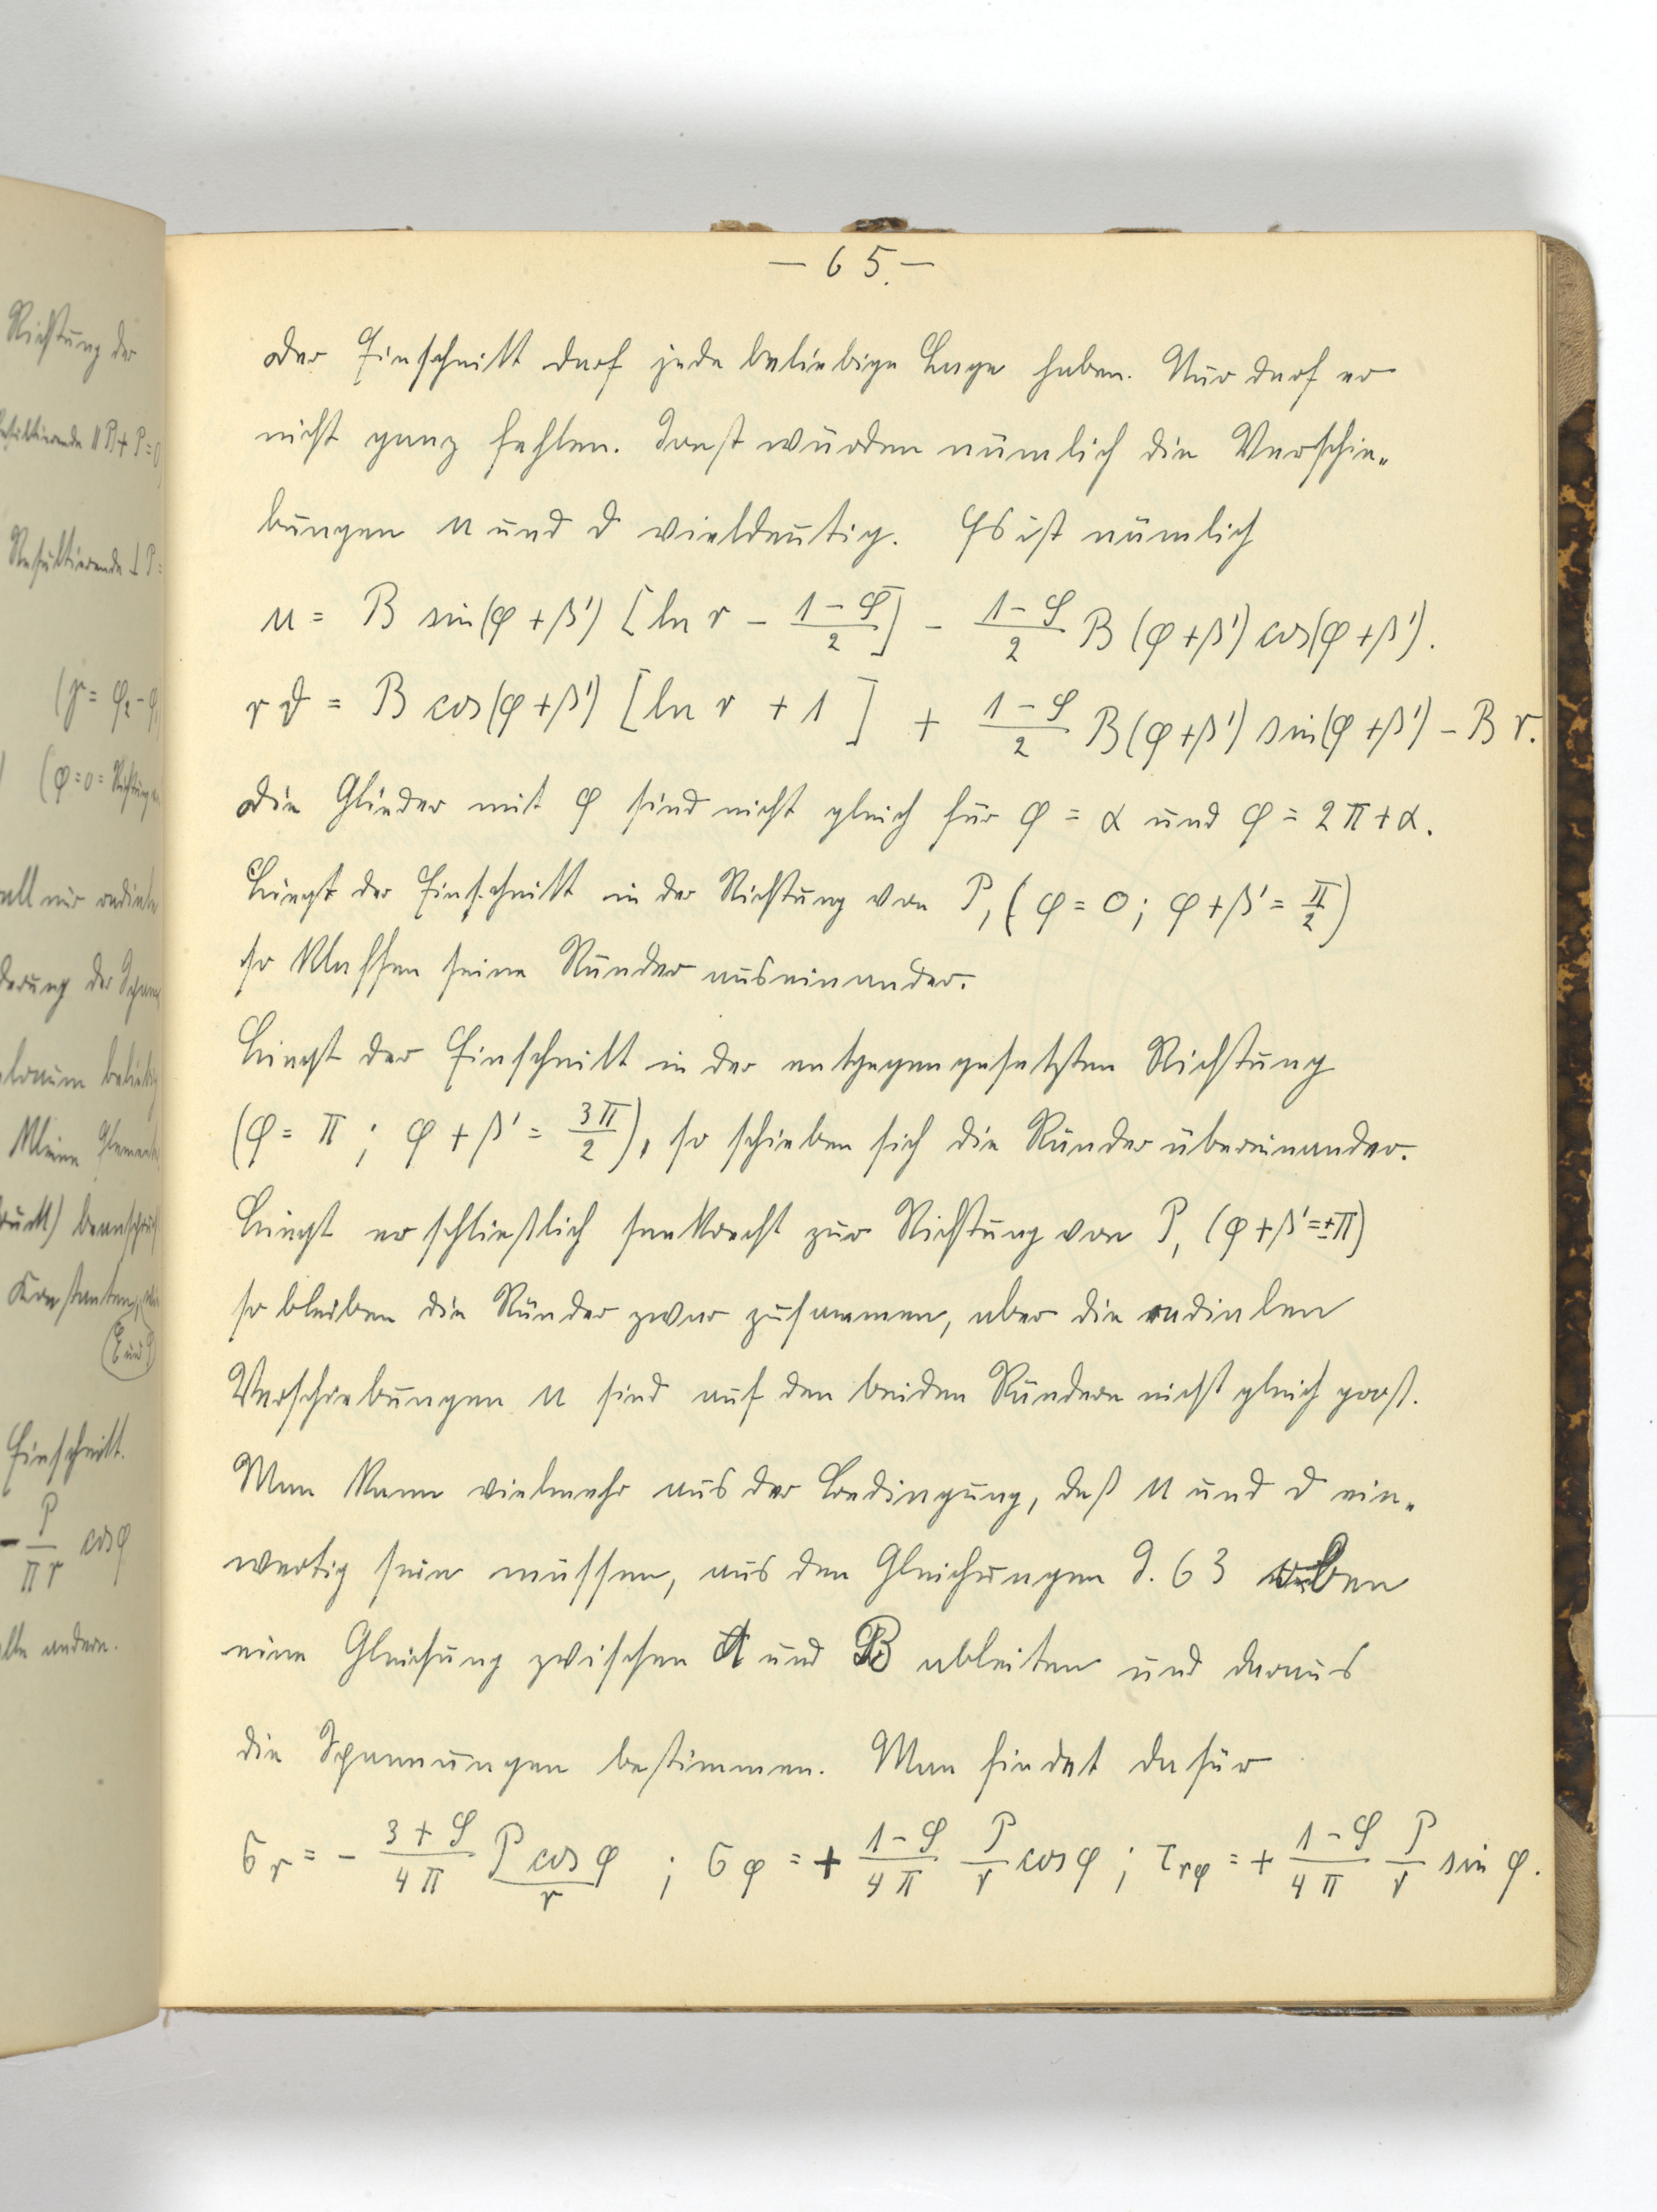 Richtung der
Resultierende || P + P = 0
Resultierende ⊥ P =
(γ = φ₂ - φ
(φ = 0 = Richtung
nur radiale
derung der Span
beliebig
kleine Elemente
druck) beansprucht
Konstanten,
(E und
Einschnitt.
- P/(π r) cos φ
alle andern.
— 65. —
Der Einschnitt darf jede beliebige Lage haben. Nur darf er
nicht ganz fehlen. Sonst würden nämlich die Verschie-
bungen u und ϑ vieldeutig. Es ist nämlich
u = B sin(φ + β') [ln r - (1 - ϱ)/2] - (1 - ϱ)/2 B (φ + β') cos(φ + β').
r ϑ = B cos(φ + β') [ln r + 1] + (1 - ϱ)/2 B (φ + β') sin(φ + β') - B r.
Die Glieder mit φ sind nicht gleich für φ = α und φ = 2π + α.
Liegt der Einschnitt in der Richtung von P, (φ = 0; φ + β' = π/2)
so klaffen seine Ränder auseinander.
Liegt der Einschnitt in der entgegengesetzten Richtung
(φ = π; φ + β' = 3π/2), so schieben sich die Ränder übereinander.
Liegt er schließlich senkrecht zur Richtung von P, (φ + β' = ±π)
so bleiben die Ränder zwar zusammen, aber die radialen
Verschiebungen u sind auf den beiden Rändern nicht gleich groß.
Man kann vielmehr aus der Bedingung, daß u und ϑ ein-
wertig sein müssen, aus den Gleichungen S. 63 oben
eine Gleichung zwischen A und B ableiten und daraus
die Spannungen bestimmen. Man findet dafür
σ_r = - (3 + ϱ)/(4π) P cos φ / r ; σ_φ = + (1 - ϱ)/(4π) P/r cos φ ; τ_rφ = + (1 - ϱ)/(4π) P/r sin φ.